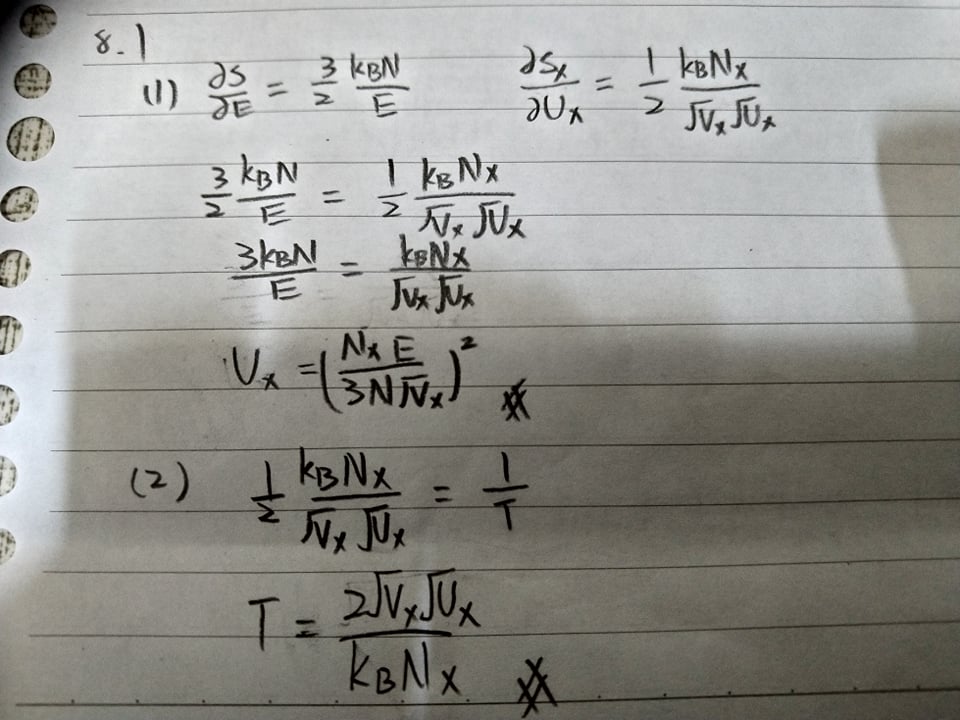 8.1
(1) ∂S/∂E = 3/2 k_BN/E    ∂S_x/∂U_x = 1/2 k_BN_x/(√V_x √U_x)
3/2 k_BN/E = 1/2 k_BN_x/(√V_x √U_x)
3k_BN/E = k_BN_x/(√V_x √U_x)
U_x = (N_x E/(3N√V_x))²
(2) 1/2 k_BN_x/(√V_x √U_x) = 1/T
T = 2√V_x √U_x/(k_BN_x)